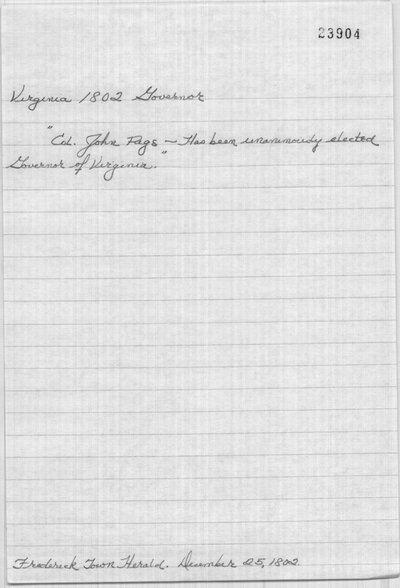 23904
Virginia 1802 Governor
"Col. John Page — Has been unanimously elected
Governor of Virginia."
Frederick Town Herald. December 25, 1802